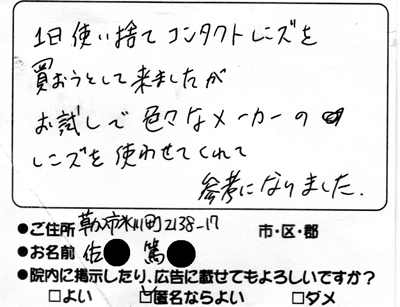 1日使い捨てコンタクトレンズを
買おうとして来ましたが
お試しで色々なメーカーの
レンズを使わせてくれて
参考になりました.
●ご住所 草加市氷川町2138-17 市・区・郡
●お名前 佐● 篤●
●院内に掲示したり、広告に載せてもよろしいですか?
□よい ☑匿名ならよい □ダメ